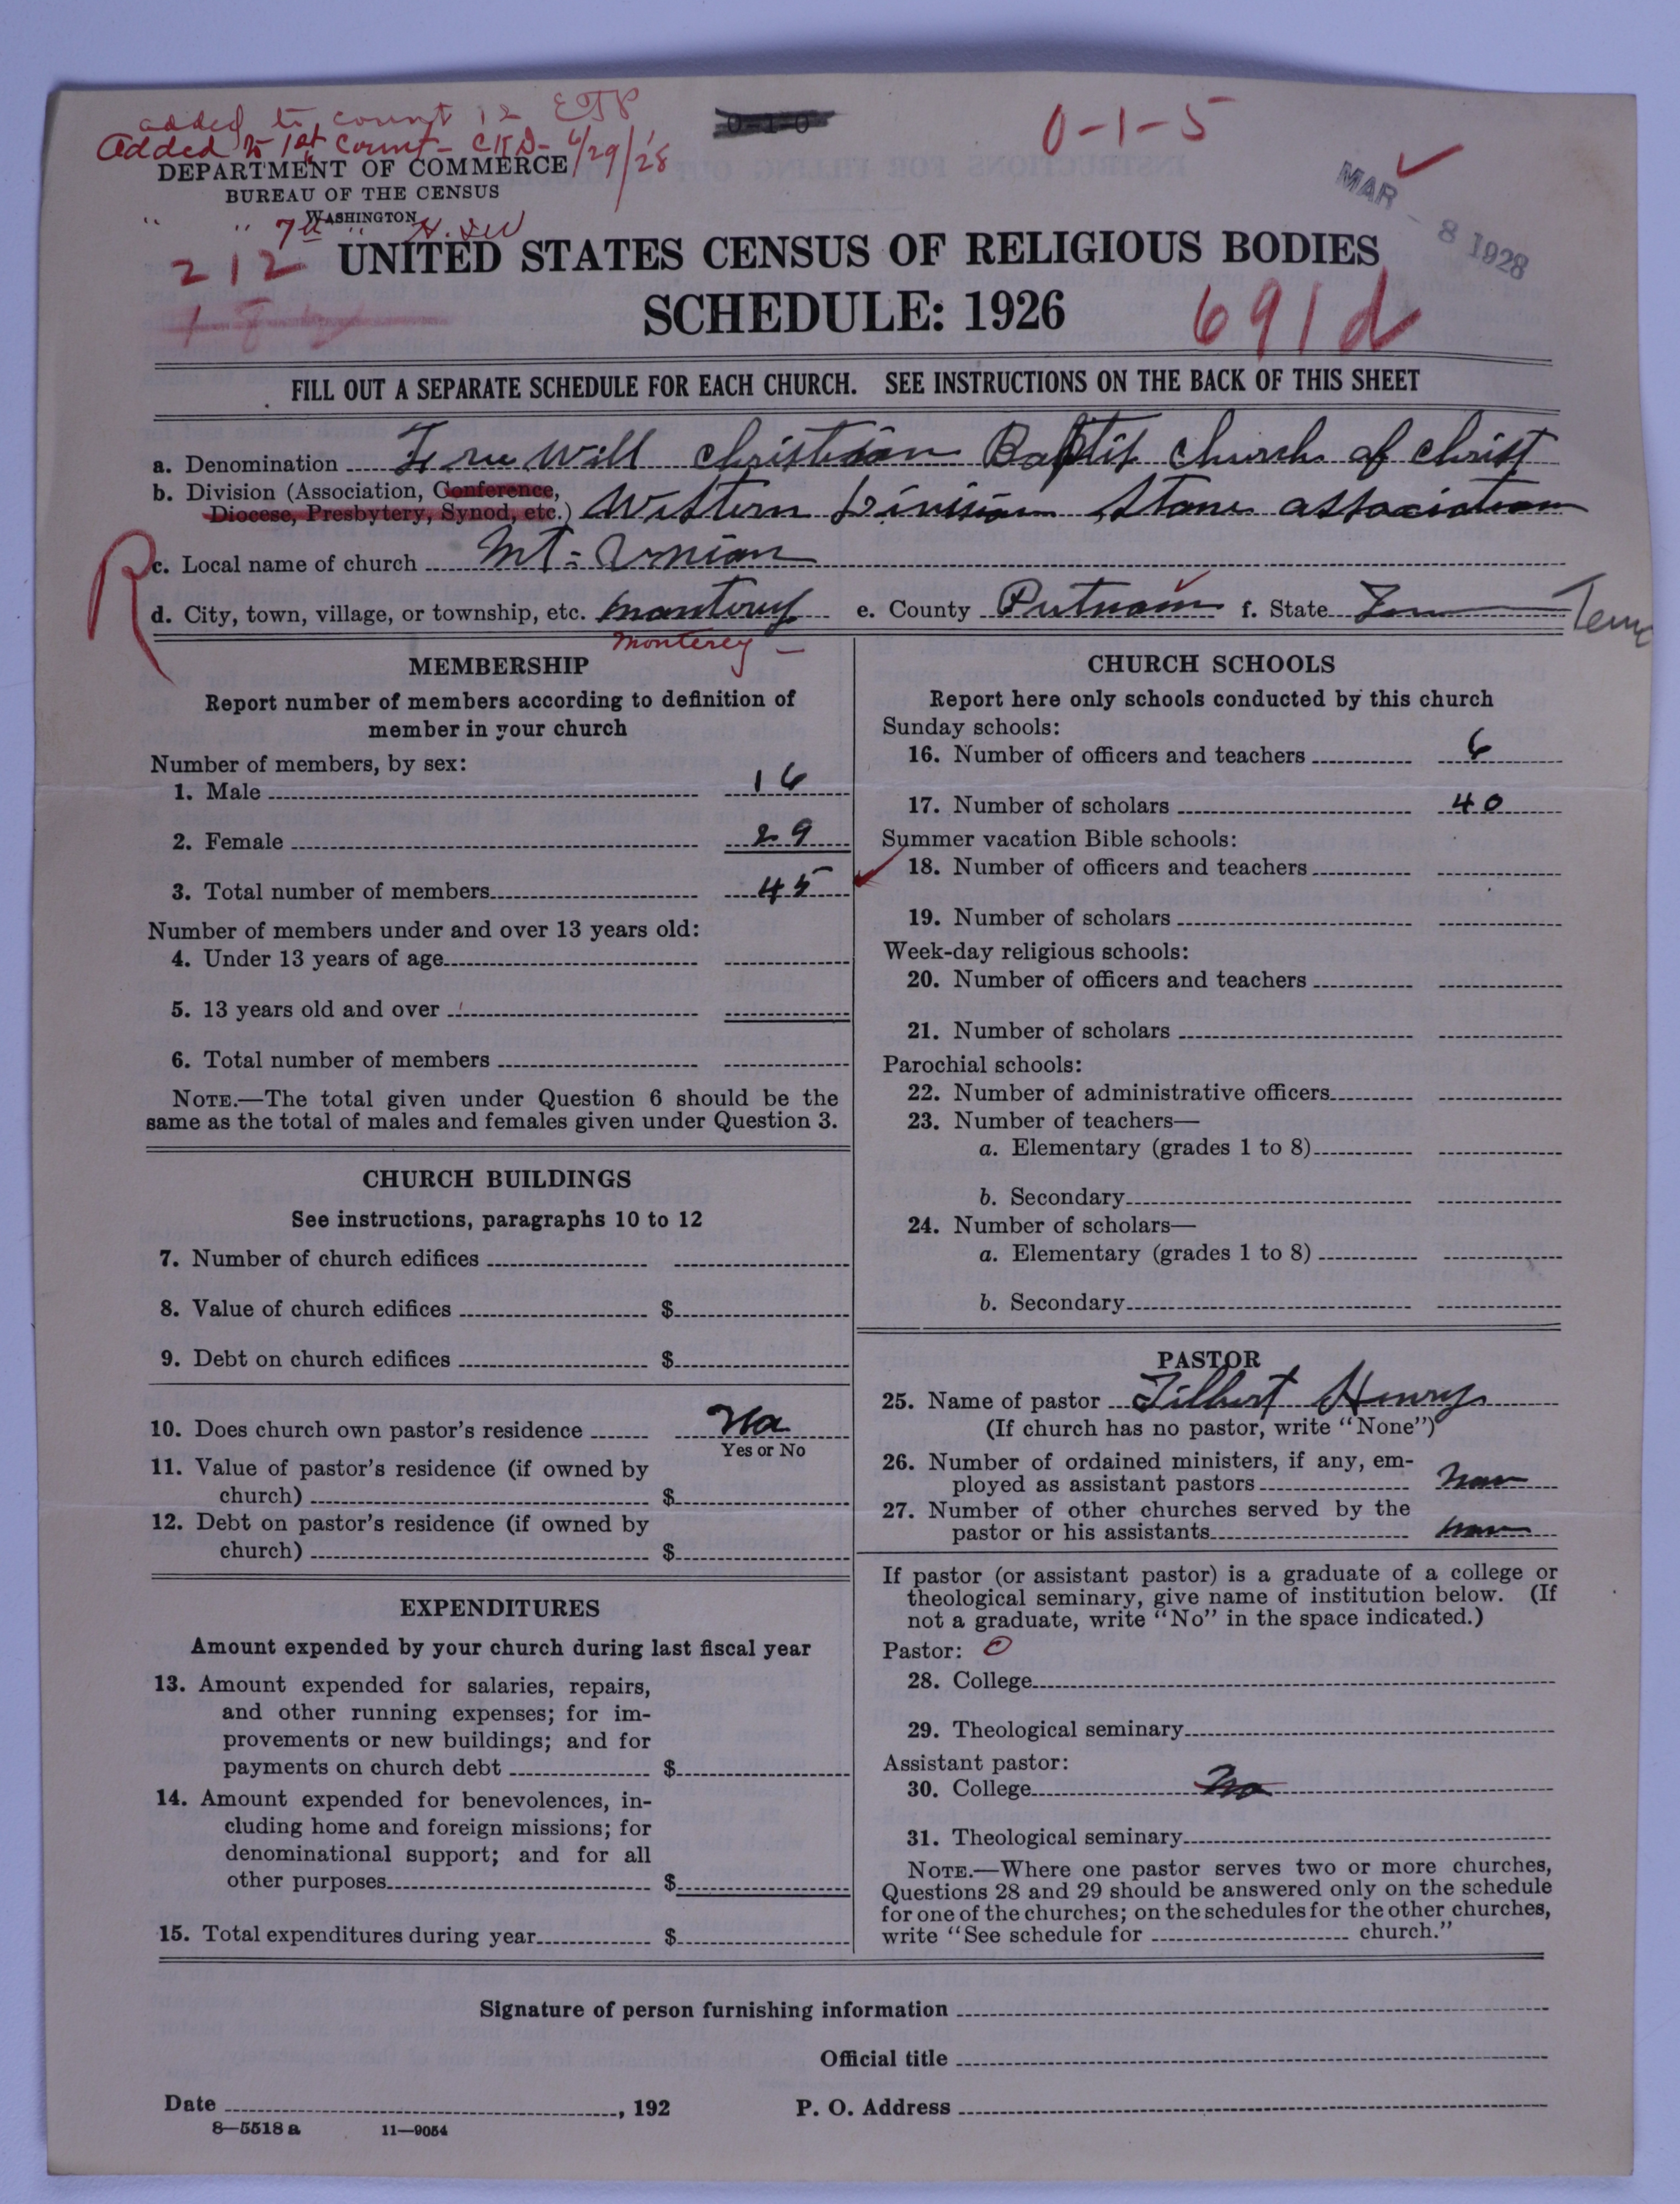 added to count 12 ETP
Added to 1st Count - CKD - 6/29/28
0-1-0
0-1-5
DEPARTMENT OF COMMERCE
BUREAU OF THE CENSUS
WASHINGTON
" " 7th "
MAR - 8 1928
212
UNITED STATES CENSUS OF RELIGIOUS BODIES
SCHEDULE: 1926
691d
FILL OUT A SEPARATE SCHEDULE FOR EACH CHURCH. SEE INSTRUCTIONS ON THE BACK OF THIS SHEET
a. Denomination Free Will Christian Baptist Church of Christ
b. Division (Association, Conference,
Diocese, Presbytery, Synod, etc.) Western Division Stone association
R
c. Local name of church Mt. Union
d. City, town, village, or township, etc. Monterey e. County Putnam f. State Tenn
Monterey
MEMBERSHIP
Report number of members according to definition of
member in your church
Number of members, by sex:
1. Male 16
2. Female 29
3. Total number of members 45
Number of members under and over 13 years old:
4. Under 13 years of age
5. 13 years old and over
6. Total number of members
NOTE.—The total given under Question 6 should be the
same as the total of males and females given under Question 3.
CHURCH BUILDINGS
See instructions, paragraphs 10 to 12
7. Number of church edifices
8. Value of church edifices $
9. Debt on church edifices $
10. Does church own pastor's residence No
Yes or No
11. Value of pastor's residence (if owned by
church) $
12. Debt on pastor's residence (if owned by
church) $
EXPENDITURES
Amount expended by your church during last fiscal year
13. Amount expended for salaries, repairs,
and other running expenses; for im-
provements or new buildings; and for
payments on church debt $
14. Amount expended for benevolences, in-
cluding home and foreign missions; for
denominational support; and for all
other purposes $
15. Total expenditures during year $
CHURCH SCHOOLS
Report here only schools conducted by this church
Sunday schools:
16. Number of officers and teachers 6
17. Number of scholars 40
Summer vacation Bible schools:
18. Number of officers and teachers
19. Number of scholars
Week-day religious schools:
20. Number of officers and teachers
21. Number of scholars
Parochial schools:
22. Number of administrative officers
23. Number of teachers—
a. Elementary (grades 1 to 8)
b. Secondary
24. Number of scholars—
a. Elementary (grades 1 to 8)
b. Secondary
PASTOR
25. Name of pastor Filbert Henry
(If church has no pastor, write "None")
26. Number of ordained ministers, if any, em-
ployed as assistant pastors non
27. Number of other churches served by the
pastor or his assistants non
If pastor (or assistant pastor) is a graduate of a college or
theological seminary, give name of institution below. (If
not a graduate, write "No" in the space indicated.)
Pastor: 0
28. College
29. Theological seminary
Assistant pastor:
30. College No
31. Theological seminary
NOTE.—Where one pastor serves two or more churches,
Questions 28 and 29 should be answered only on the schedule
for one of the churches; on the schedules for the other churches,
write "See schedule for church."
Signature of person furnishing information
Official title
Date , 192 P. O. Address
8—5518 a 11—9054